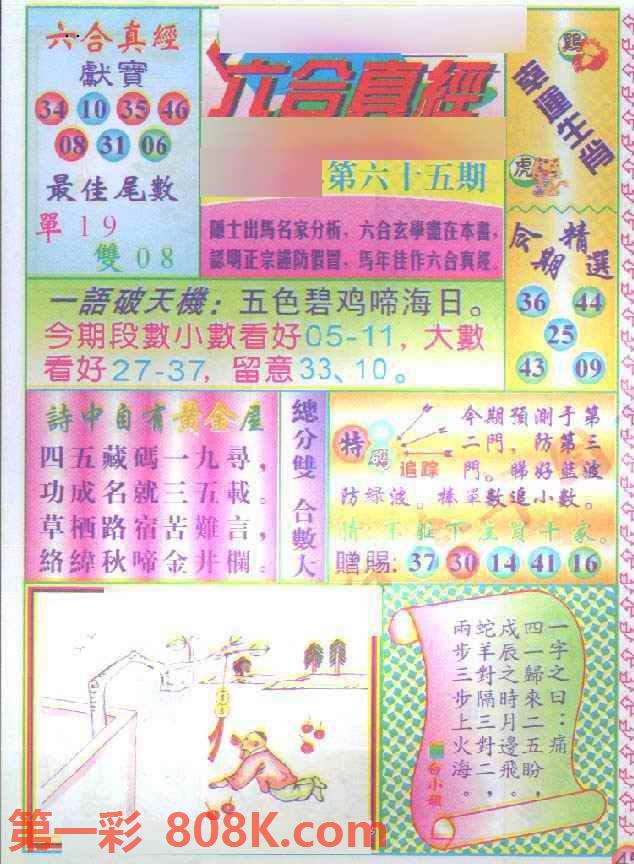 六合真經
獻寶
34 10 35 46
08 31 06
最佳尾數
單 19
雙 08
六合真經
第六十五期
隱士出馬名家分析，六合玄學盡在本書，
認明正宗謹防假冒，馬年佳作六合真經。
鷄
幸運生肖
虎
今期精選
36 44
25
43 09
一語破天機：五色碧鸡啼海日。
今期段數小數看好05-11，大數
看好27-37，留意33、10。
詩中自有黃金屋
四五藏碼一九尋，
功成名就三五載。
草栖路宿苦難言，
絡緯秋啼金井欄。
總分雙 合數大
特
追踪
今期預測于第
二門，防第三
門。睇好藍波
防綠波。揍單數追小數。
贈賜：37 30 14 41 16
一字之曰：痛
四一歸來二五盼，
戍辰之時月邊飛。
蛇羊對隔三對二，
兩步三步上火海。
第一彩 808K.com